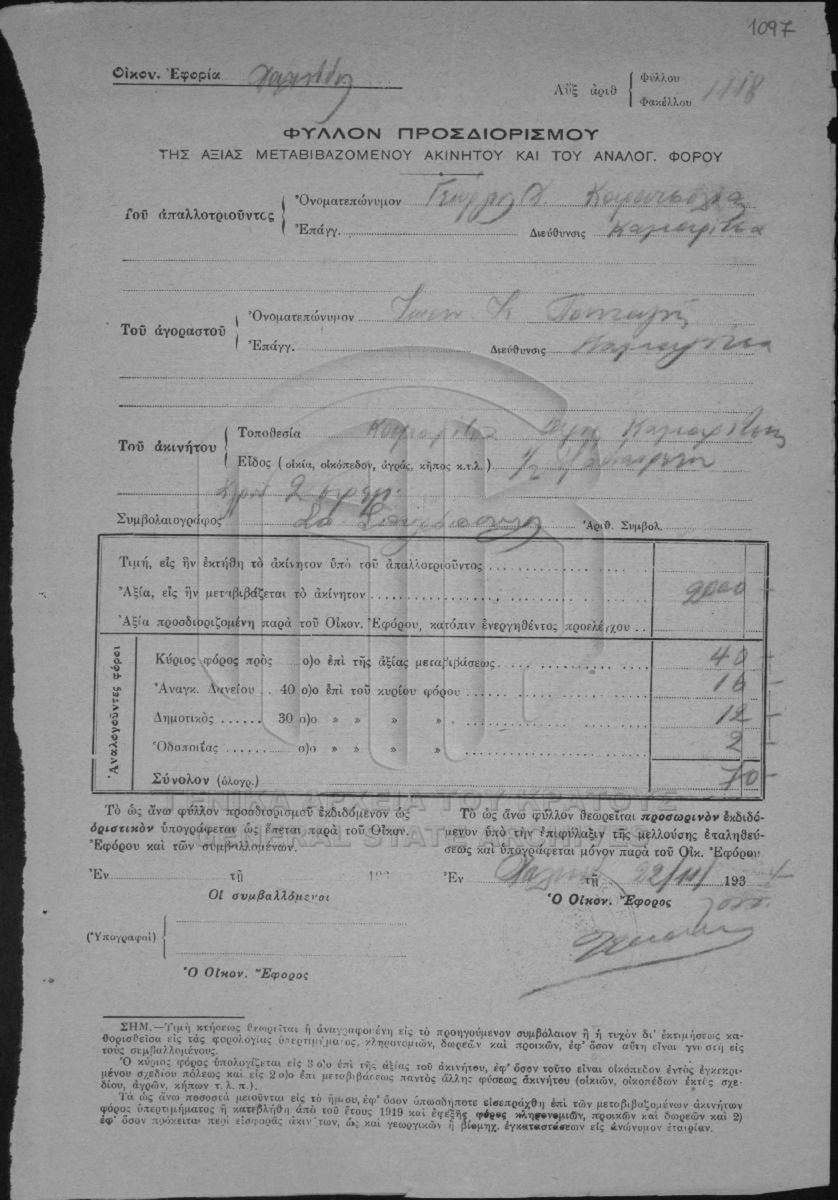 1097
Οἰκον. Ἐφορία
Αὔξ ἀριθ { Φύλλου
Φακέλλου 1118
ΦΥΛΛΟΝ ΠΡΟΣΔΙΟΡΙΣΜΟΥ
ΤΗΣ ΑΞΙΑΣ ΜΕΤΑΒΙΒΑΖΟΜΕΝΟΥ ΑΚΙΝΗΤΟΥ ΚΑΙ ΤΟΥ ΑΝΑΛΟΓ. ΦΟΡΟΥ
Τοῦ ἀπαλλοτριοῦντος { Ὀνοματεπώνυμον
Ἐπάγγ. Διεύθυνσις
Τοῦ ἀγοραστοῦ { Ὀνοματεπώνυμον
Ἐπάγγ. Διεύθυνσις
Τοῦ ἀκινήτου { Τοποθεσία
Εἶδος (οἰκία, οἰκόπεδον, ἀγρός, κῆπος κ.τ.λ.) 1/2
2 στρεμ.
Συμβολαιογράφος Ἀριθ. Συμβολ.
Τιμή, εἰς ἣν ἐκτήθη τὸ ἀκίνητον ὑπὸ τοῦ ἀπαλλοτριοῦντος
Ἀξία, εἰς ἣν μεταβιβάζεται τὸ ἀκίνητον 2000
Ἀξία προσδιοριζομένη παρὰ τοῦ Οἰκον. Ἐφόρου, κατόπιν ἐνεργηθέντος προελέγχου
Ἀναλογοῦντες φόροι
Κύριος φόρος πρὸς ο)ο ἐπὶ τῆς ἀξίας μεταβιβάσεως 40
Ἀναγκ. Δανείου 40 ο)ο ἐπὶ τοῦ κυρίου φόρου 16
Δημοτικὸς 30 ο)ο » » » » 12
Ὁδοποιΐας ο)ο » » » » 2
Σύνολον (ὁλογρ.) 70
ΓΕΝΙΚΑ ΑΡΧΕΙΑ ΤΟΥ ΚΡΑΤΟΥΣ
GENERAL STATE ARCHIVES
Τὸ ὡς ἄνω φύλλον προσδιορισμοῦ ἐκδιδόμενον ὡς
ὁριστικὸν ὑπογράφεται ὡς ἕπεται παρὰ τοῦ Οἰκον.
Ἐφόρου καὶ τῶν συμβαλλομένων.
Ἐν τῇ 193
Οἱ συμβαλλόμενοι
(Ὑπογραφαὶ) {
Ὁ Οἰκον. Ἔφορος
Τὸ ὡς ἄνω φύλλον θεωρεῖται προσωρινὸν ἐκδιδό-
μενον ὑπὸ τὴν ἐπιφύλαξιν τῆς μελλούσης ἐπαληθεύ-
σεως καὶ ὑπογράφεται μόνον παρὰ τοῦ Οἰκ. Ἐφόρου
Ἐν τῇ 193
Ὁ Οἰκον. Ἔφορος
ΣΗΜ.—Τιμὴ κτήσεως θεωρεῖται ἡ ἀναγραφομένη εἰς τὸ προηγούμενον συμβόλαιον ἢ ἡ τυχὸν δι' ἐκτιμήσεως κα-
θορισθεῖσα εἰς τὰς φορολογίας ὑπερτιμήματος, κληρονομιῶν, δωρεῶν καὶ προικῶν, ἐφ' ὅσον αὕτη εἶναι γνωστὴ εἰς
τοὺς συμβαλλομένους.
Ὁ κύριος φόρος ὑπολογίζεται εἰς 3 ο)ο ἐπὶ τῆς ἀξίας τοῦ ἀκινήτου, ἐφ' ὅσον τοῦτο εἶναι οἰκόπεδον ἐντὸς ἐγκεκρι-
μένου σχεδίου πόλεως καὶ εἰς 2 ο)ο ἐπὶ μεταβιβάσεως παντὸς ἄλλης φύσεως ἀκινήτου (οἰκιῶν, οἰκοπέδων ἐκτὸς σχε-
δίου, ἀγρῶν, κήπων τ. λ. π.).
Τὰ ὡς ἄνω ποσοστὰ μειοῦνται εἰς τὸ ἥμισυ, ἐφ' ὅσον ὁπωσδήποτε εἰσεπράχθη ἐπὶ τῶν μεταβιβαζομένων ἀκινήτων
φόρος ὑπερτιμήματος ἢ κατεβλήθη ἀπὸ τοῦ ἔτους 1919 καὶ ἐφεξῆς φόρος κληρονομιῶν, προικῶν καὶ δωρεῶν καὶ 2)
ἐφ' ὅσον πρόκειται περὶ εἰσφορᾶς ἀκινήτων, ὡς καὶ γεωργικῶν ἢ βιομηχ. ἐγκαταστάσεων εἰς ἀνώνυμον ἑταιρίαν.